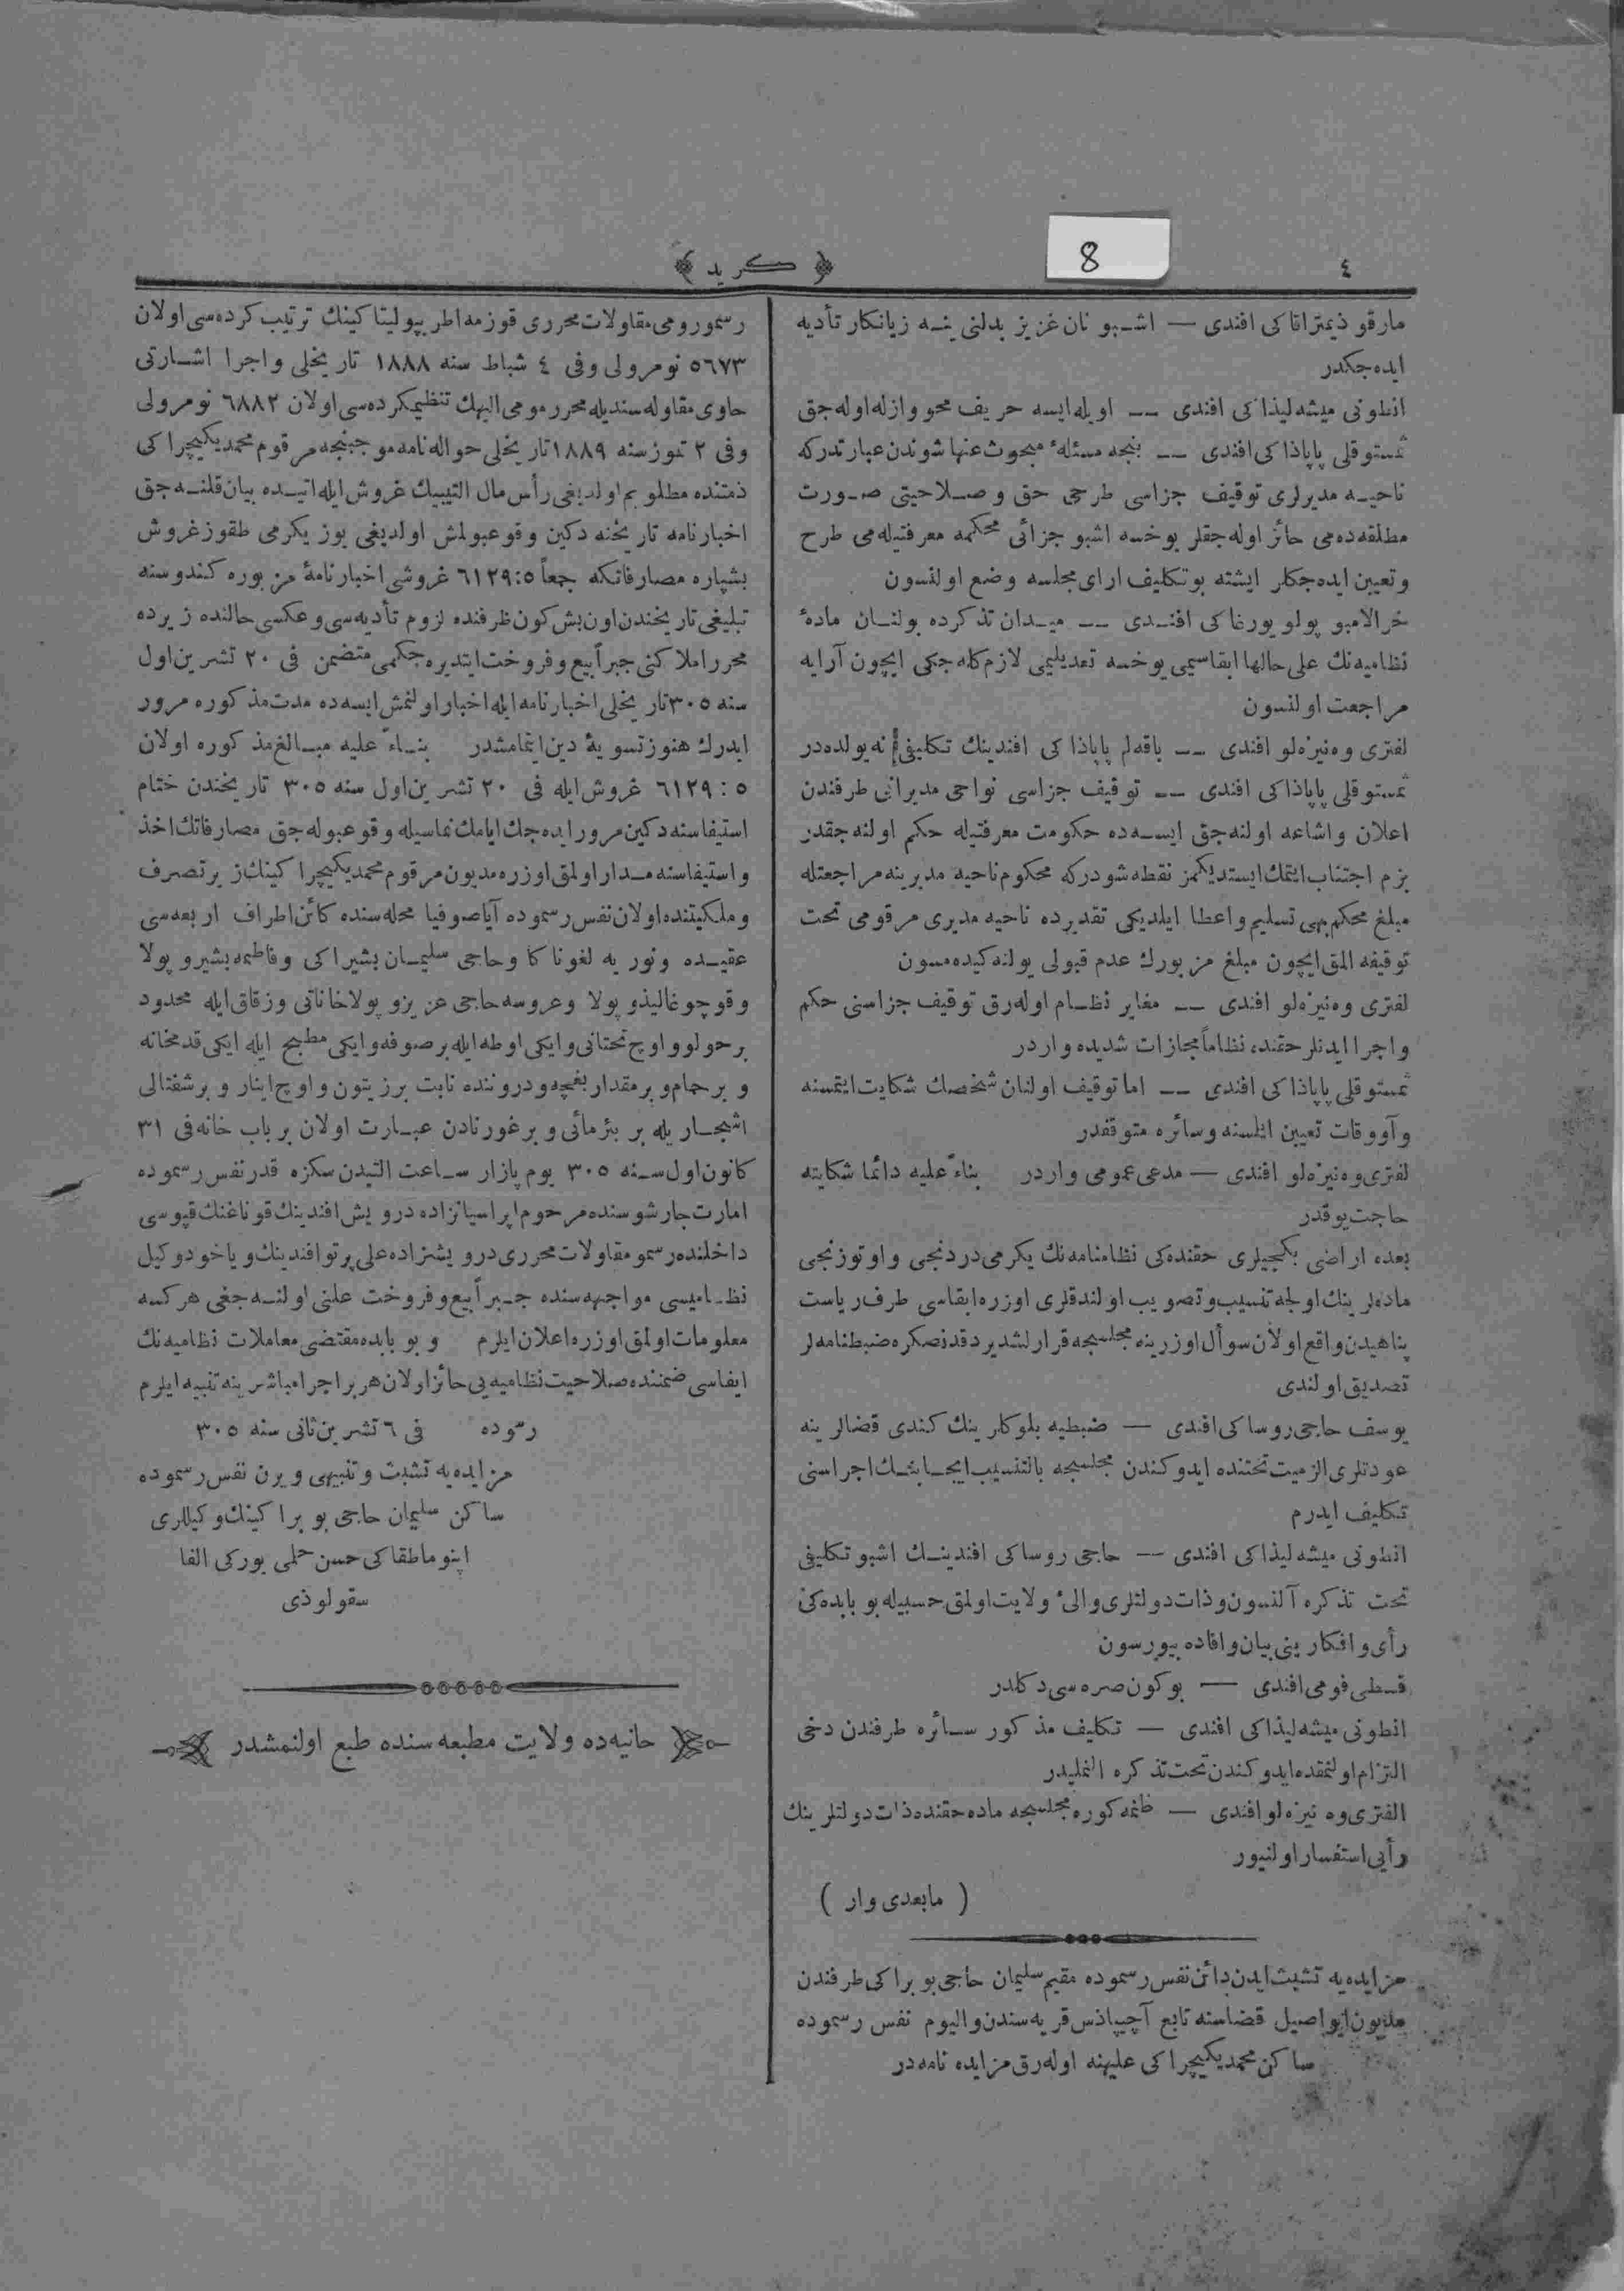 ٤
﴿ كريد ﴾
8
مارقو ذيمتراقاكى افندى — اشبو نان عزيز بدلنى ينه زيانكار تأديه
ايده‌جكدر
انطونى ميشه‌ليذاكى افندى — اويله ايسه حريف محو وازله اوله‌جق
ثمستوقلى پاپاذاكى افندى — بنجه مسئلهٔ مبحوث عنها شوندن عبارتدركه
ناحيه مديرلرى توقيف جزاسى طرحى حق و صلاحيتى صورت
مطلقه‌ده‌مى حائز اوله‌جقلر يوخسه اشبو جزائى محكمه معرفتيله‌مى طرح
و تعيين ايده‌جكلر ايشته بو تكليف اراى مجلسه وضع اولنسون
خرالامبو پولويورغاكى افندى — ميدان تذكرده بولنان مادهٔ
نظاميه‌نك على حالها ابقاسيمى يوخسه تعديليمى لازم كله‌جكى ايچون آرايه
مراجعت اولنسون
لفترى وه‌نيزه‌لو افندى — باقه‌لم پاپاذاكى افندينك تكليفى نه يولده‌در
ثمستوقلى پاپاذاكى افندى — توقيف جزاسى نواحى مديرانى طرفندن
اعلان واشاعه اولنه‌جق ايسه‌ده حكومت معرفتيله حكم اولنه‌جقدر
بزم اجتناب ايتمك ايستديكمز نقطه شودركه محكوم ناحيه مديرينه مراجعتله
مبلغ محكم بهى تسليم واعطا ايلديكى تقديرده ناحيه مديرى مرقومى تحت
توقيفه المق ايچون مبلغ مزبورك عدم قبولى يولنه كيده‌مسون
لفترى وه‌نيزه‌لو افندى — مغاير نظام اوله‌رق توقيف جزاسنى حكم
واجرا ايدنلر حقنده نظاماً مجازات شديده واردر
ثمستوقلى پاپاذاكى افندى — اما توقيف اولنان شخصك شكايت ايتمسنه
وآووقات تعيين ايلسنه وسائره متوقفدر
لفترى وه‌نيزه‌لو افندى — مدعى عمومى واردر بناءً عليه دائما شكايته
حاجت يوقدر
بعده اراضى بكجيلرى حقنده‌كى نظامنامه‌نك يكرمى دردنجى و اوتوزنجى
ماده‌لرينك اولجه تنسيب وتصويب اولندقلرى اوزره ابقاسى طرف رياست
پناهيدن واقع اولان سوأل اوزرينه مجلسجه قرارلشديردقدنصكره ضبطنامه‌لر
تصديق اولندى
يوسف حاجى روساكى افندى — ضبطيه بلوكلرينك كندى قضالرينه
عودتلرى الزميت تحتنده ايدوكندن مجلسجه بالتنسيب ايجابنك اجراسنى
تكليف ايدرم
انطونى ميشه‌ليذاكى افندى — حاجى روساكى افندينك اشبو تكليفى
تحت تذكره آلنسون وذات دولتلرى والىٔ ولايت اولمق حسبيله بو بابده‌كى
رأى و افكارينى بيان و افاده بيورسون
قسطى فومى افندى — بوكون صره‌سى دكلدر
انطونى ميشه‌ليذاكى افندى — تكليف مذكور سائره طرفندن دخى
التزام اولنمقده ايدوكندن تحت تذكره النمليدر
الفترى وه نيزه‌لو افندى — ظنمه كوره مجلسجه ماده حقنده ذات دولتلرينك
رأيى استفسار اولنيور
( مابعدى وار )
مزايده‌يه تشبث ايدن دائن نفس رسموده مقيم سليمان حاجى بوبراكى طرفندن
مديون ايواصيل قضاسنه تابع آچيپاذس قريه‌سندن واليوم نفس رسموده
ساكن محمد يكيچراكى عليهنه اوله‌رق مزايده نامه‌در
رسمورومى مقاولات محررى قوزمه اطربيوليتاكينك ترتيب كرده‌سى اولان
٥٦٧٣ نومرولى وفى ٤ شباط سنه ١٨٨٨ تاريخلى واجرا اشارتى
حاوى مقاوله سنديله محرر مومى اليهك تنظيمكرده‌سى اولان ٦٨٨٢ نومرولى
وفى ٢ تموز سنه ١٨٨٩ تاريخلى حواله‌نامه موجبنجه مرقوم محمد يكيچراكى
ذمتنده مطلوبم اولديغى رأس مال التيبيك غروش ايله اتيده بيان قلنه‌جق
اخبارنامه تاريخنه دكين وقوعبولمش اولديغى يوز يكرمى طقوز غروش
بشپاره مصارفاتكه جمعاً ٦١٢٩:٥ غروشى اخبارنامهٔ مزبوره كندوسنه
تبليغى تاريخندن اون بش كون ظرفنده لزوم تأديه‌سى وعكسى حالنده زيرده
محرر املاكنى جبراً بيع و فروخت ايتديره‌جكمى متضمن فى ٢٠ تشرين اول
سنه ٣٠٥ تاريخلى اخبارنامه ايله اخبار اولنمش ايسه‌ده مدت مذكوره مرور
ايدرك هنوز تسويهٔ دين ايتمامشدر بناءً عليه مبالغ مذكوره اولان
٦١٢٩:٥ غروش ايله فى ٢٠ تشرين اول سنه ٣٠٥ تاريخندن ختام
استيفاسنه دكين مرور ايده‌جك ايامك نماسيله وقوعبوله‌جق مصارفاتك اخذ
واستيفاسنه مدار اولمق اوزره مديون مرقوم محمد يكيچراكينك زير تصرف
و ملكيتنده اولان نفس رسموده آياصوفيا محله‌سنده كائن اطراف اربعه‌سى
عقيده ونوريه لغوناكا وحاجى سليمان بشيراكى وفاطمه بشيروپولا
وقوچوغاليذوپولا وعروسه حاجى عزيزوپولا خاناتى وزقاق ايله محدود
بر حولو واوچ تحتانى و ايكى اوطه ايله بر صوفه و ايكى مطبخ ايله ايكى قدمخانه
و بر حمام و بر مقدار بغچه و دروننده نابت بر زيتون و اوچ اينار و بر شفتالى
اشجاريله بر بئرمائى و برغورنادن عبارت اولان برباب خانه فى ٣١
كانون اول سنه ٣٠٥ يوم پازار ساعت التيدن سكزه قدر نفس رسموده
امارت چارشوسنده مرحوم اپراسيانزاده درويش افندينك قوناغنك قپوسى
داخلنده رسمو مقاولات محررى درويشزاده على پرتو افندينك وياخود وكيل
نظاميسى مواجهه‌سنده جبراً بيع و فروخت علنى اولنه‌جغى هركسه
معلومات اولمق اوزره اعلان ايلرم و بو بابده مقتضى معاملات نظاميه‌نك
ايفاسى ضمننده صلاحيت نظاميه‌يى حائز اولان هر بر اجرا مباشرينه تنبيه ايلرم
رسموده فى ٦ تشرين ثانى سنه ٣٠٥
مزايده‌يه تشبث وتنبيهى ويرن نفس رسموده
ساكن سليمان حاجى بوبراكينك وكيللرى
اپنوماطقاكى حسن حلمى بوركى الفا
سقولوذى
حانيه‌ده ولايت مطبعه‌سنده طبع اولنمشدر